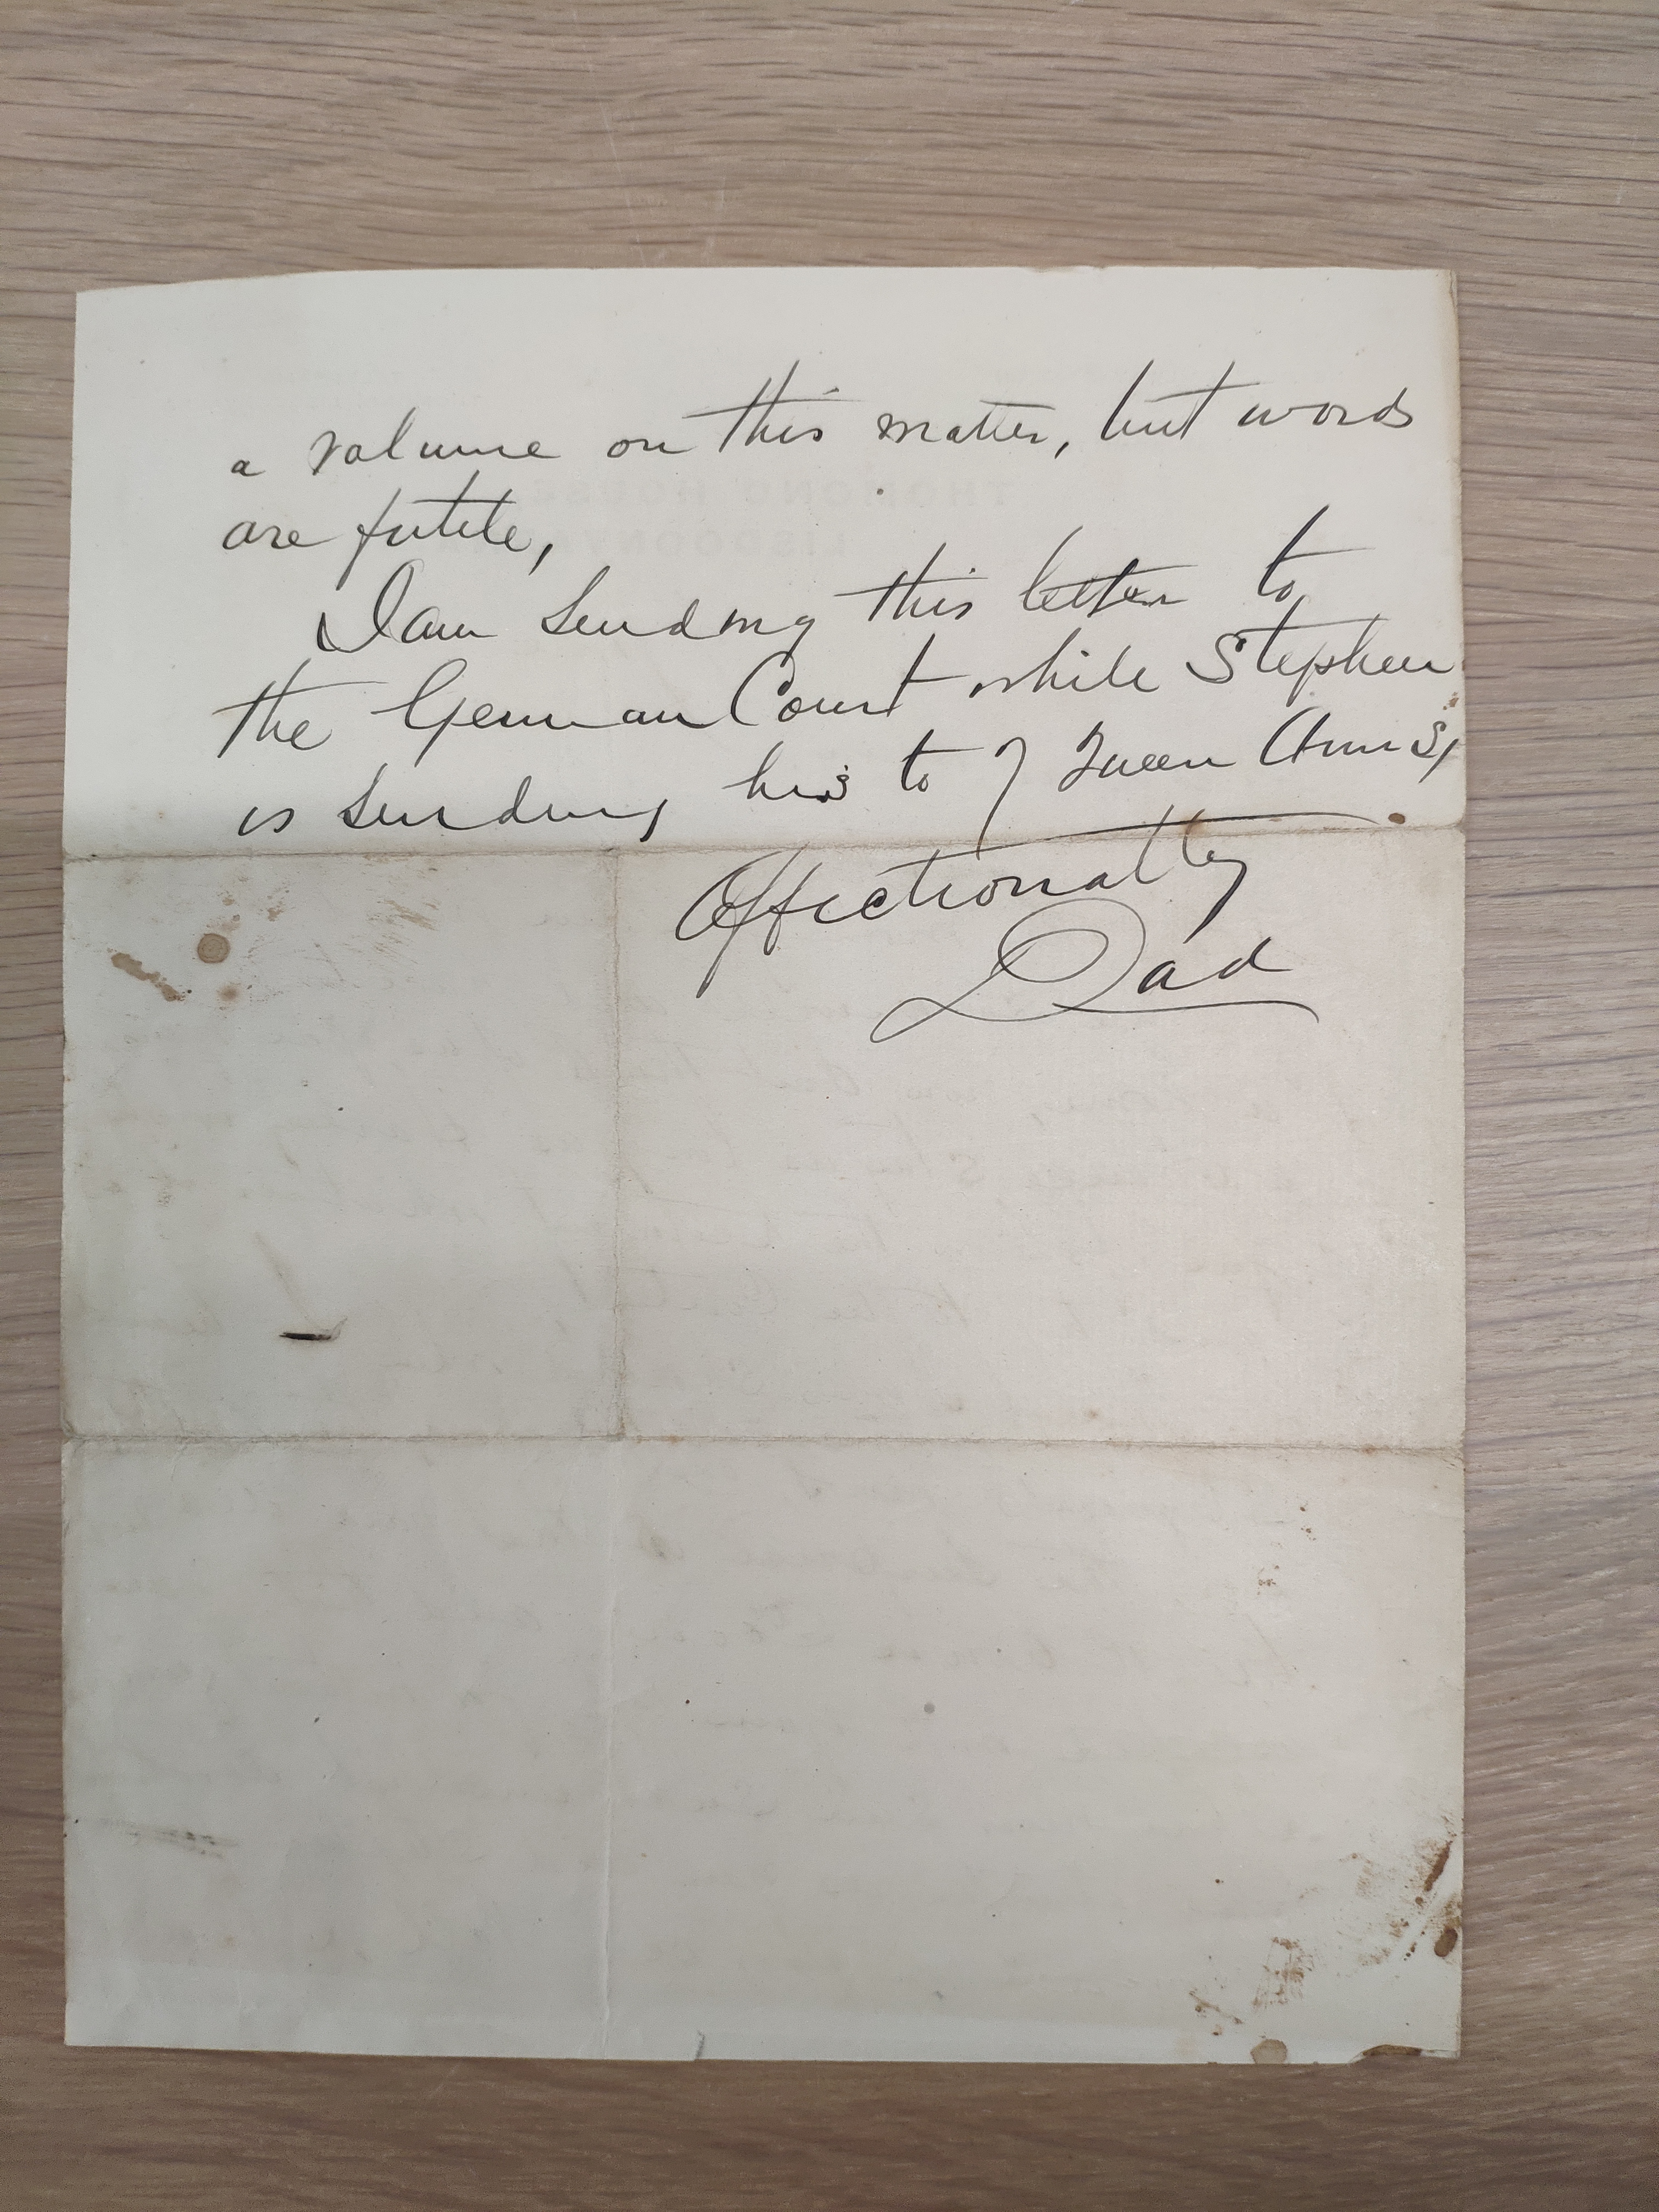 a volume on this matter, but words
are futile,
I am sending this letter to
the German Court while Stephen
is sending his to 7 Queen Ann St
Affectionatly
Dad